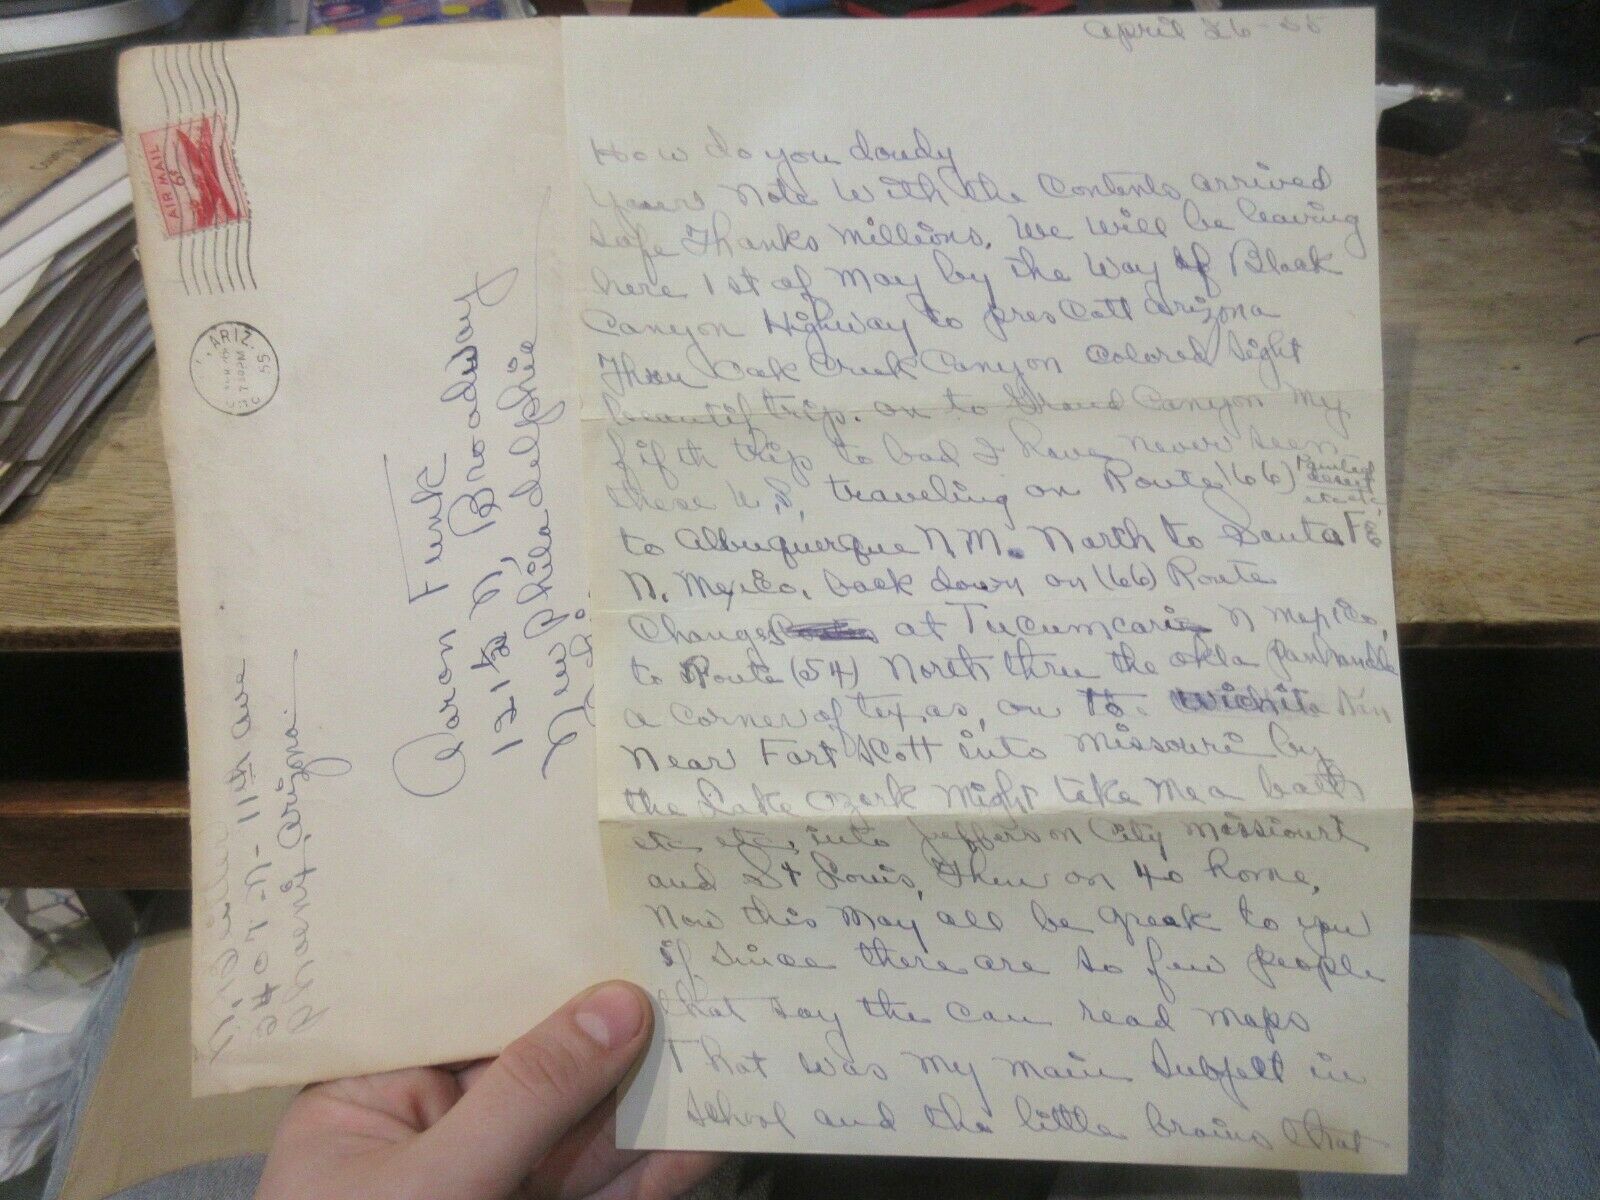 AIR MAIL
6¢
ARIZ.
55
Aaron Funk
121½ N. Broadway
New Philadelphia
2407-N-11th Ave
Phoenix, Arizona.
April 26-55
How do you doudy
Yours Note With the Contents arrived
safe Thanks Millions. We Will be leaving
here 1st of May by the Way of Black
Canyon Highway to prescott arizona
Thru Oak Creek Canyon Colored sight
beautif trip. on to Grand Canyon My
fifth trip to bad I have never seen
these U.S. traveling on Route (66) Painted desert
to Albuquerque N M. North to Santa FE
N. Mexico. back down on (66) Route
Change at Tucumcari N Mexico,
to Route (54) North thru the okla panhandle
a corner of texas, on to Wichita
Near Fort Scott into Missouri by
the Lake Ozark Might take Me a bath
etc etc, into Jefferson City Missiouri
and St Louis, Then on 40 home,
Now this May all be greak to you
if since there are so few people
that say the can read maps
That was My main subject in
school and the little brains that